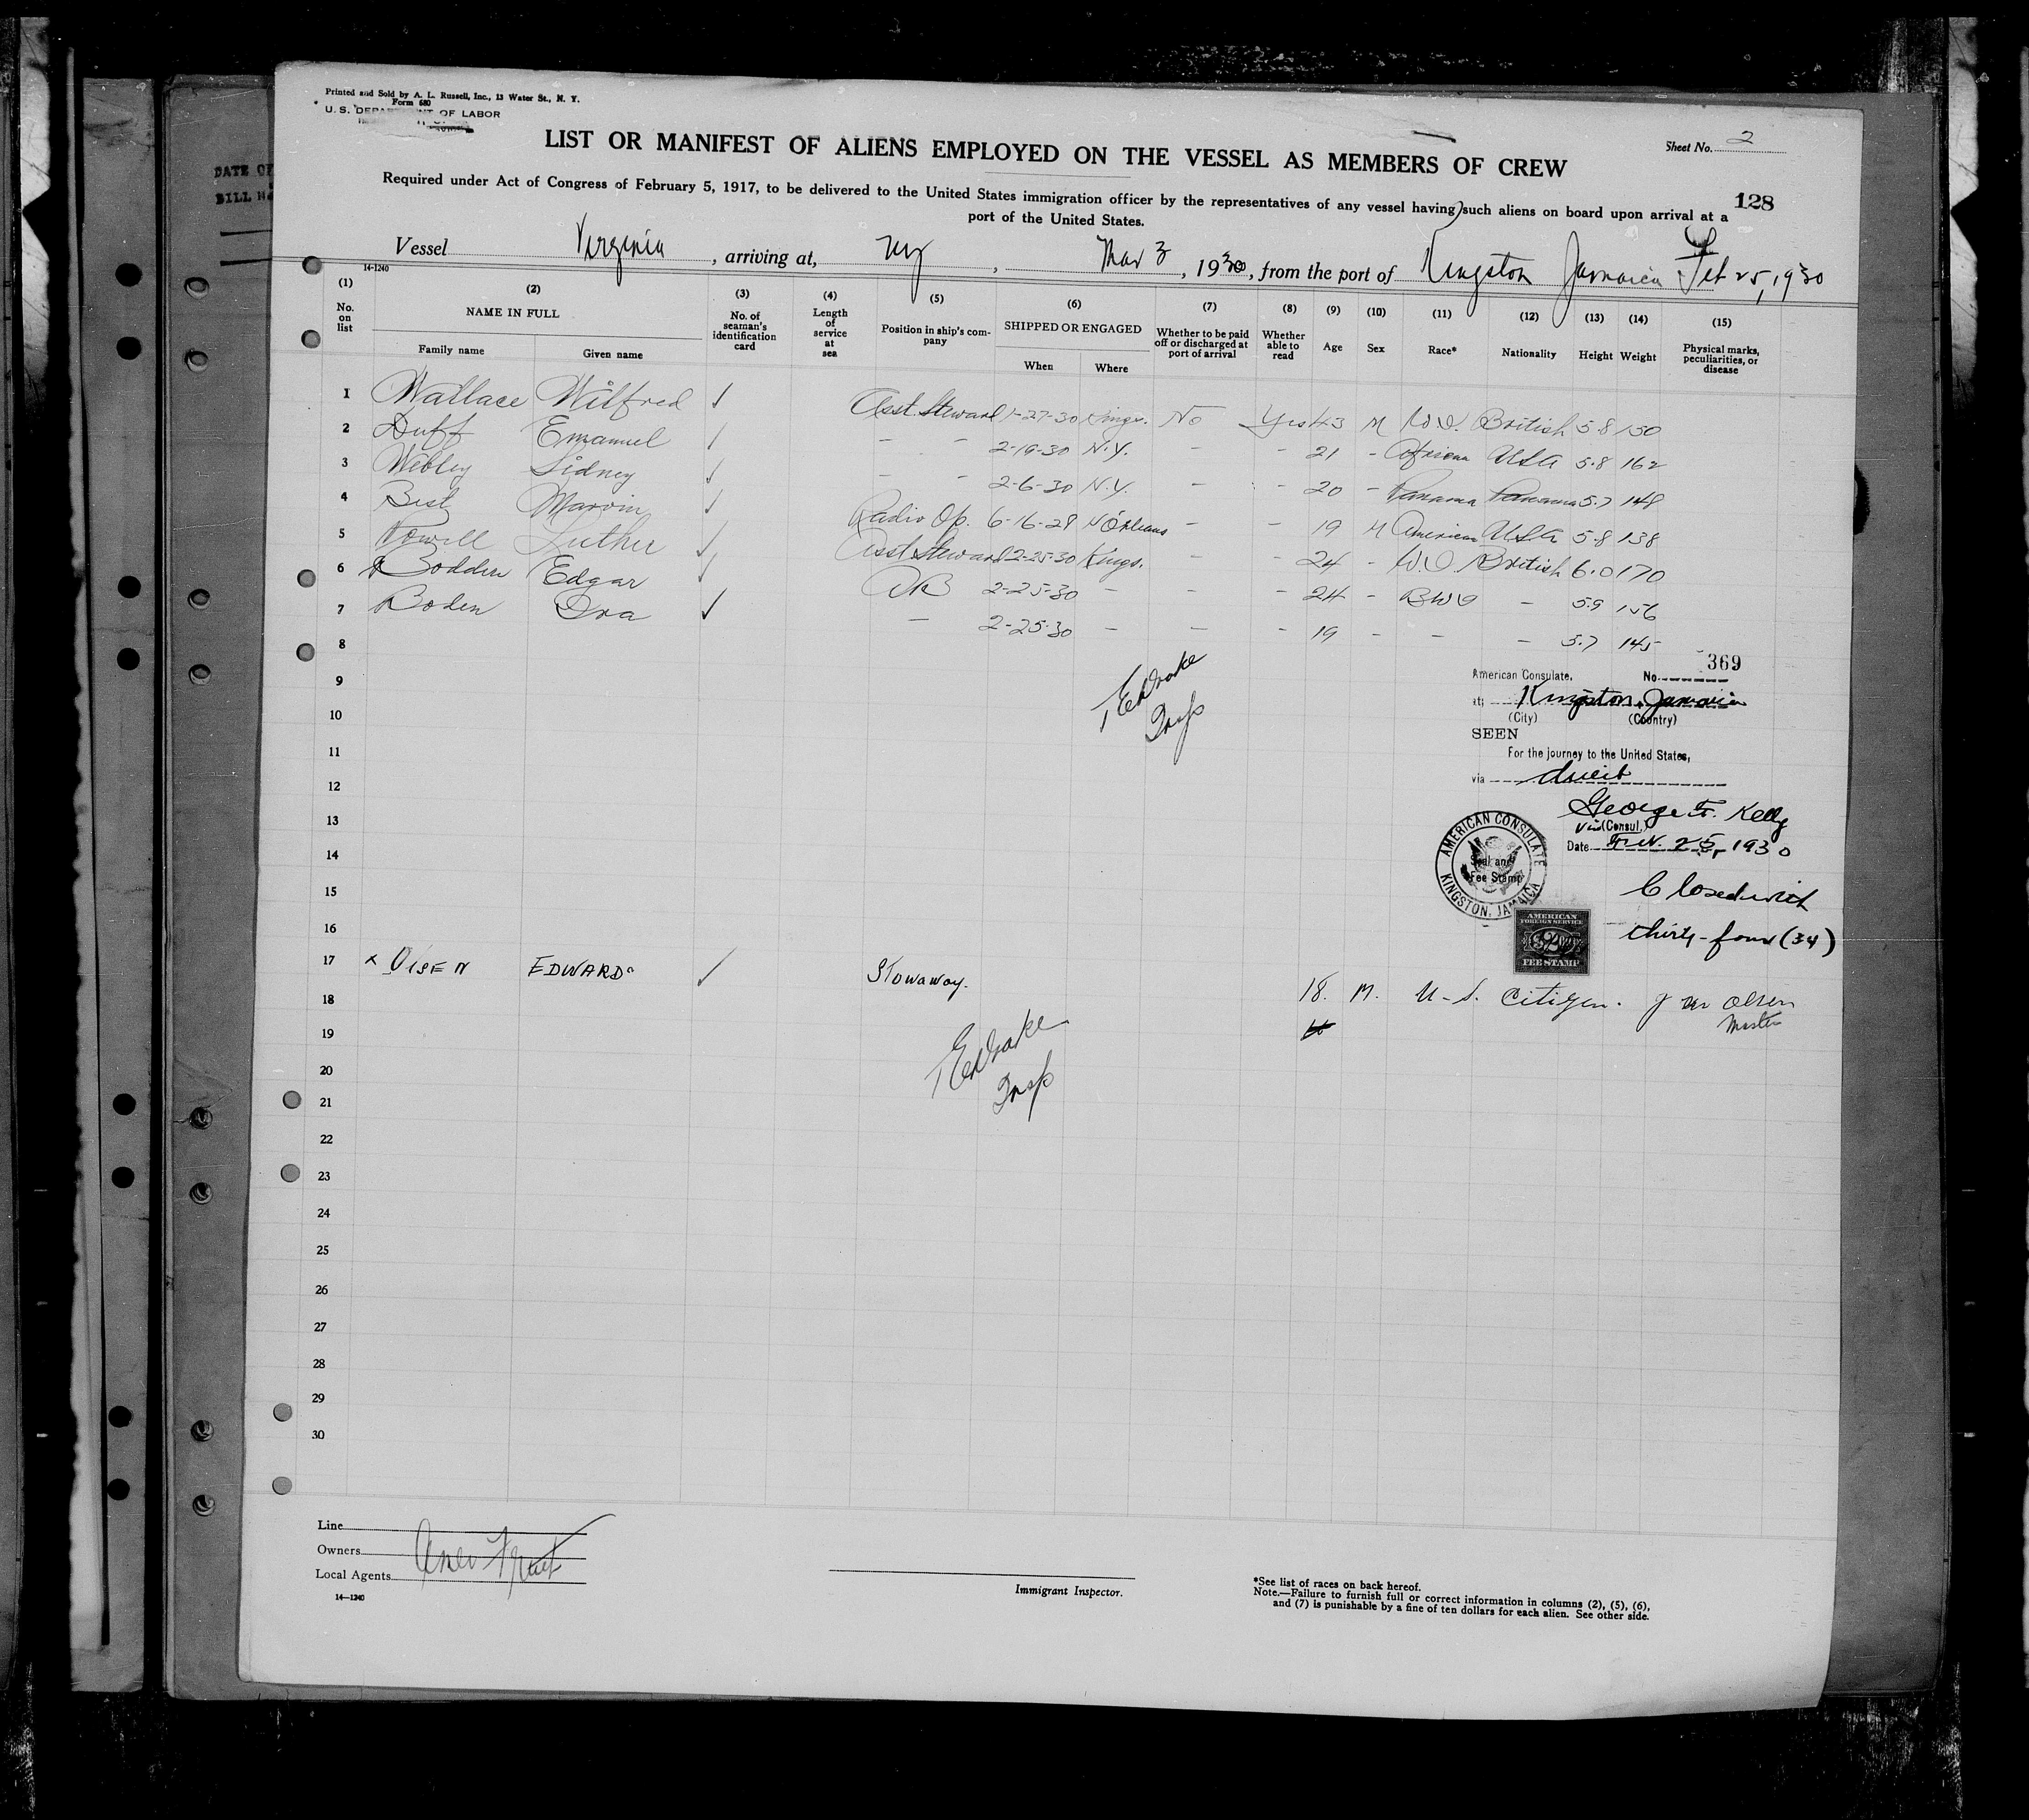 Printed and Sold by A. L. Russell, Inc., 13 Water St., N. Y.
Form 680
U. S. DEPARTMENT OF LABOR
Sheet No. 2
LIST OR MANIFEST OF ALIENS EMPLOYED ON THE VESSEL AS MEMBERS OF CREW
128
Required under Act of Congress of February 5, 1917, to be delivered to the United States immigration officer by the representatives of any vessel having such aliens on board upon arrival at a
port of the United States.
Vessel Virginia, arriving at, NY, Mar 3, 1930, from the port of Kingston Jamaica Feb 25, 1930
14-1240
(1) (2) (3) (4) (5) (6) (7) (8) (9) (10) (11) (12) (13) (14) (15)
No. on list NAME IN FULL Family name Given name No. of seaman's identification card Length of service at sea Position in ship's company SHIPPED OR ENGAGED When Where Whether to be paid off or discharged at port of arrival Whether able to read Age Sex Race* Nationality Height Weight Physical marks, peculiarities, or disease
1 Wallace Wilfred ✓ Asst. Steward 1-27-30 Kings. No Yes 43 M W.I. British 5.8 150
2 Duff Emanuel ✓ - - 2-19-30 N.Y. - - 21 - African USA 5.8 162
3 Webley Sidney ✓ - - 2-6-30 N.Y. - - 20 - Panama Panama 5.7 148
4 Best Marvin ✓ Radio Op. 6-16-29 N Orleans - - 19 M American USA 5.8 138
5 Luther ✓ Asst. Steward 2-25-30 Kings. - - 24 - W.I. British 6.0 170
6 Bodden Edgar ✓ AB 2-25-30 - - - 24 - BWI - 5.9 156
7 Boden Ora ✓ - 2-25-30 - - - 19 - - - 5.7 145
8
9
10
11
12
13
14
15
16
Drake
Insp
369
American Consulate, No.
at Kingston, Jamaica
(City) (Country)
SEEN
For the journey to the United States,
via direct
George F. Kelly
Vice (Consul.)
Date Feb. 25, 1930
AMERICAN CONSULATE
KINGSTON, JAMAICA
Seal and
Fee Stamp
AMERICAN
FOREIGN SERVICE
$2
FEE STAMP
Closed with
thirty-four (34)
17 x OlSEN EDWARD ✓ Stowaway. 18. M. U-S. Citizen. J M Olsen
Master
18
19
Drake
Insp
20
21
22
23
24
25
26
27
28
29
30
Line
Owners
Local Agents
Fruit
14-1240
Immigrant Inspector.
*See list of races on back hereof.
Note.—Failure to furnish full or correct information in columns (2), (5), (6),
and (7) is punishable by a fine of ten dollars for each alien. See other side.
DATE OF
BILL